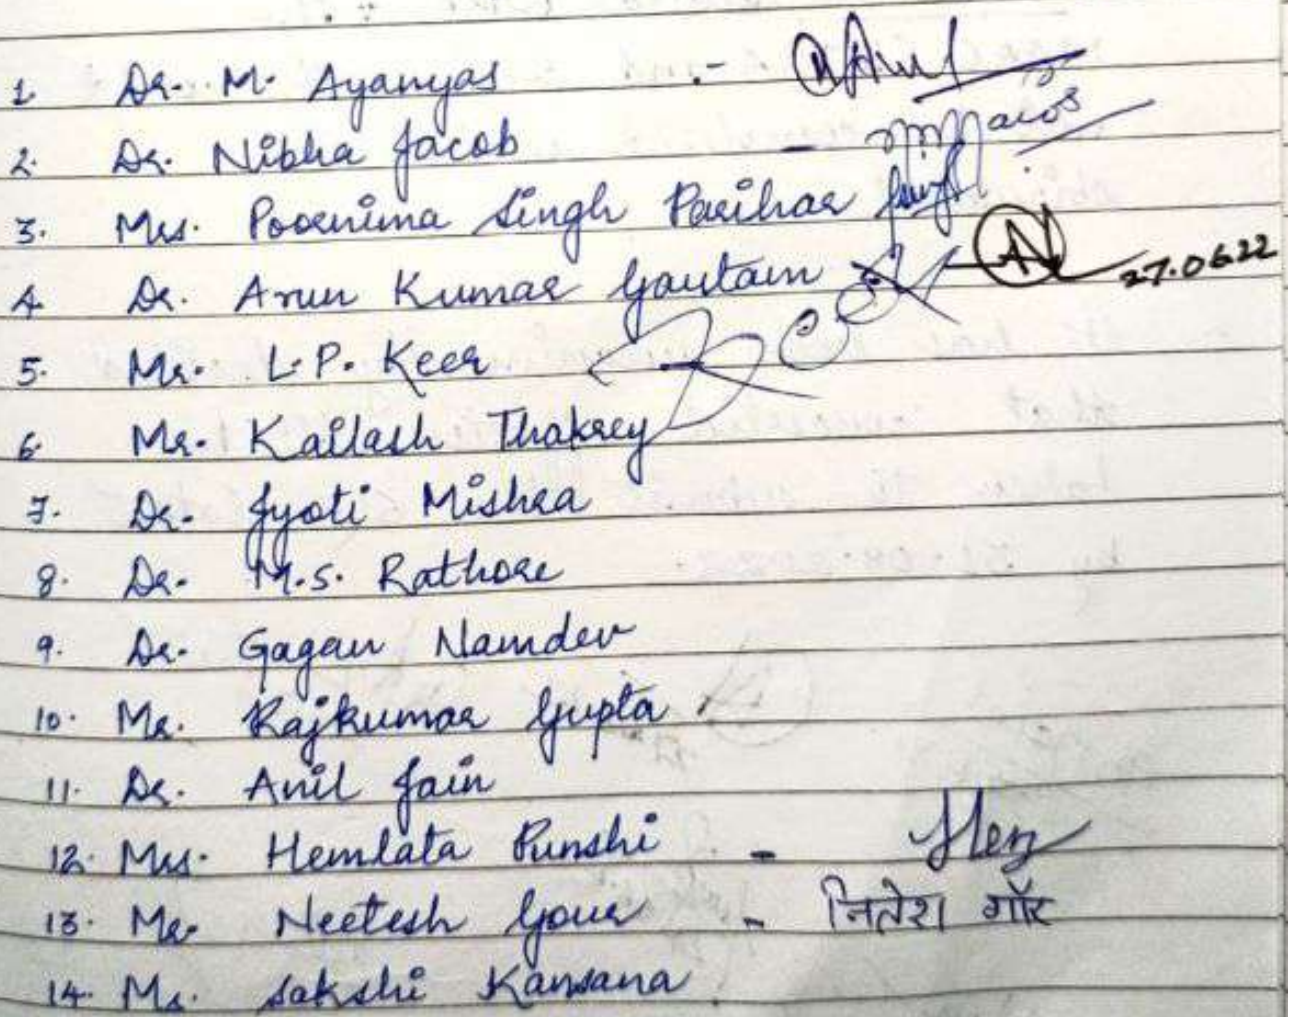 1 Dr. M. Ayanyas .-
2. Dr. Nibha Jacob -
3. Mrs. Poornima Singh Parihar
4 Dr. Arun Kumar Gautam 27.06.22
5. Mr. L.P. Keer
6. Mr. Kailash Thakrey
7. Dr. Jyoti Mishra
8. Dr. M.S. Rathore
9. Dr. Gagan Namdev
10. Mr. Rajkumar Gupta
11. Dr. Anil Jain
12. Mrs. Hemlata Punshi - Hem
13. Mr. Neetesh Gour - नितेश गौर
14. Ms. Sakshi Kansana